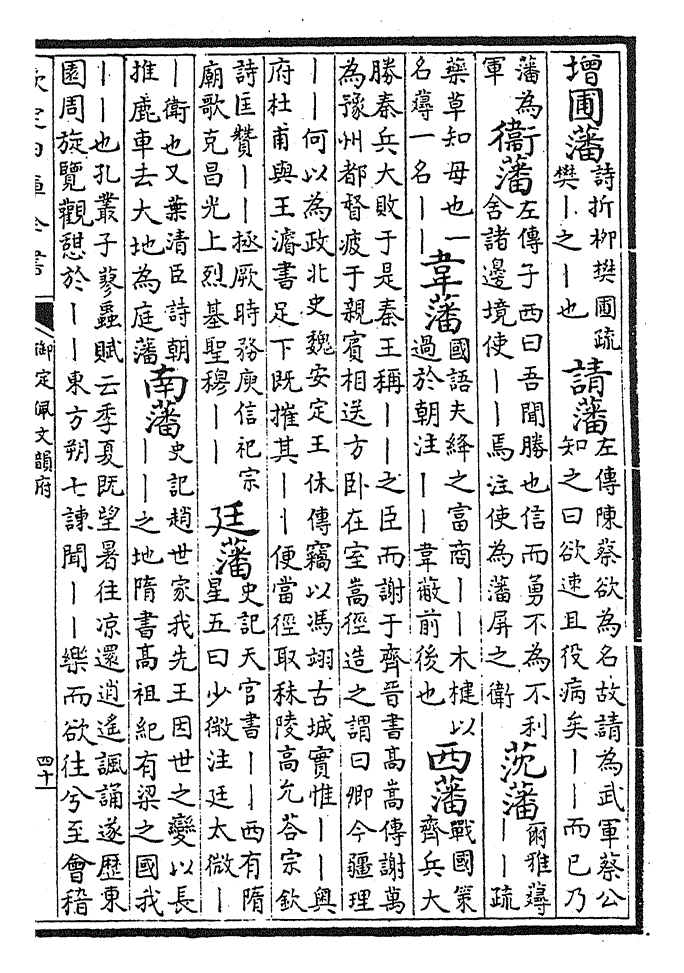 增圃藩詩折柳樊圃疏樊丨之丨也 請藩左傳陳蔡欲為名故請為武軍蔡公知之曰欲速且役病矣丨丨而已乃
藩為軍 衛藩左傳子西曰吾聞勝也信而勇不為不利舍諸邊境使丨丨焉注使為藩屏之衛 莐藩爾雅薚丨丨疏
藥草知母也一名薚一名丨丨 韋藩國語夫絳之富商丨丨木楗以過於朝注丨丨韋蔽前後也 西藩戰國策齊兵大
勝秦兵大敗于是秦王稱丨丨之臣而謝于齊晉書髙嵩傳謝萬
為豫州都督疲于親賓相送方卧在室嵩徑造之謂曰卿今疆理
丨丨何以為政北史魏安定王休傳竊以馮翊古城實惟丨丨輿
府杜甫與王濬書足下既摧其丨丨便當徑取秣陵高允荅宗欽
詩匡贊丨丨拯厥時務庾信祀宗廟歌克昌光上烈基聖穆丨丨 廷藩史記天官書丨丨西有隋星五曰少微注廷太微丨
丨衛也又葉清臣詩朝推鹿車去大地為庭藩 南藩史記趙世家我先王因世之變以長丨丨之地隋書髙祖紀有梁之國我
丨丨也孔叢子蓼蟲賦云季夏既望暑往凉還逍遥諷誦遂歴東
園周旋覽觀憇於丨丨東方朔七諫聞丨丨樂而欲往兮至會稽
欽定四庫全書
御定佩文韻府
四十